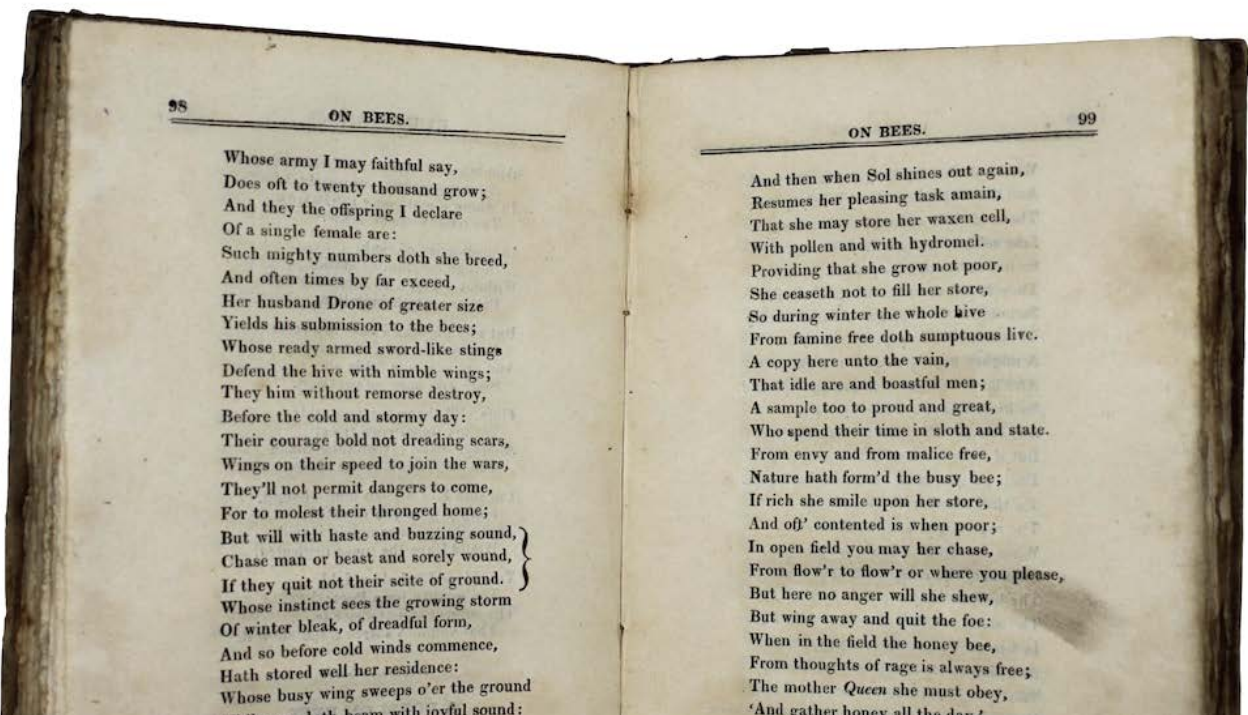 98
ON BEES.
Whose army I may faithful say,
Does oft to twenty thousand grow;
And they the offspring I declare
Of a single female are:
Such mighty numbers doth she breed,
And often times by far exceed,
Her husband Drone of greater size
Yields his submission to the bees;
Whose ready armed sword-like stings
Defend the hive with nimble wings;
They him without remorse destroy,
Before the cold and stormy day:
Their courage bold not dreading scars,
Wings on their speed to join the wars,
They'll not permit dangers to come,
For to molest their thronged home;
But will with haste and buzzing sound,
Chase man or beast and sorely wound,
If they quit not their scite of ground.
Whose instinct sees the growing storm
Of winter bleak, of dreadful form,
And so before cold winds commence,
Hath stored well her residence:
Whose busy wing sweeps o'er the ground
with joyful sound:
ON BEES.
99
And then when Sol shines out again,
Resumes her pleasing task amain,
That she may store her waxen cell,
With pollen and with hydromel.
Providing that she grow not poor,
She ceaseth not to fill her store,
So during winter the whole hive
From famine free doth sumptuous live.
A copy here unto the vain,
That idle are and boastful men;
A sample too to proud and great,
Who spend their time in sloth and state.
From envy and from malice free,
Nature hath form'd the busy bee;
If rich she smile upon her store,
And oft' contented is when poor;
In open field you may her chase,
From flow'r to flow'r or where you please,
But here no anger will she shew,
But wing away and quit the foe:
When in the field the honey bee,
From thoughts of rage is always free;
The mother Queen she must obey,
'And gather honey all the day,'